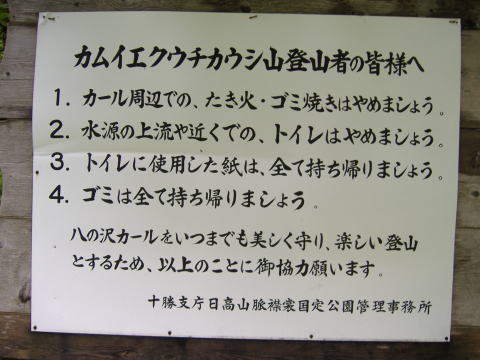 カムイエクウチカウシ山登山者の皆様へ
1. カール周辺での、たき火・ゴミ焼きはやめましょう。
2. 水源の上流や近くでの、トイレはやめましょう。
3. トイレに使用した紙は、全て持ち帰りましょう。
4. ゴミは全て持ち帰りましょう。
八の沢カールをいつまでも美しく守り、楽しい登山
とするため、以上のことに御協力願います。
十勝支庁日高山脈襟裳国定公園管理事務所